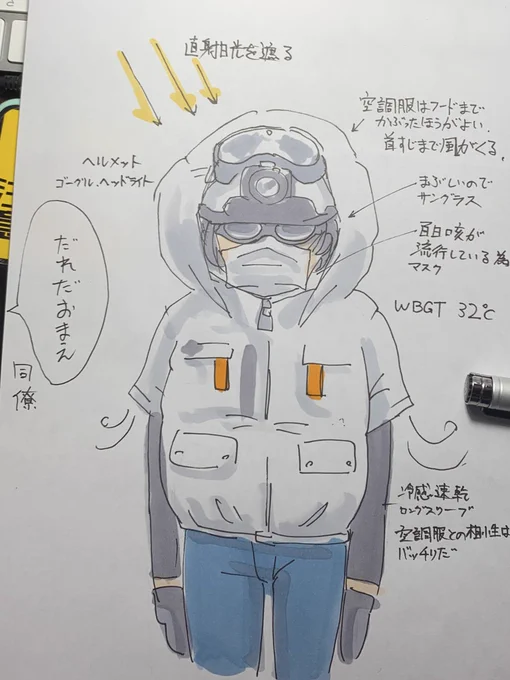 直射日光を遮る
空調服はフードまで
かぶったほうがよい.
首すじまで風がくる。
ヘルメット
ゴーグル、ヘッドライト
まぶしいので
サングラス
百日咳が
流行している為
マスク
WBGT 32℃
だれだおまえ
同僚
冷感速乾
ロングスリーブ
空調服との相性は
バッチリだ